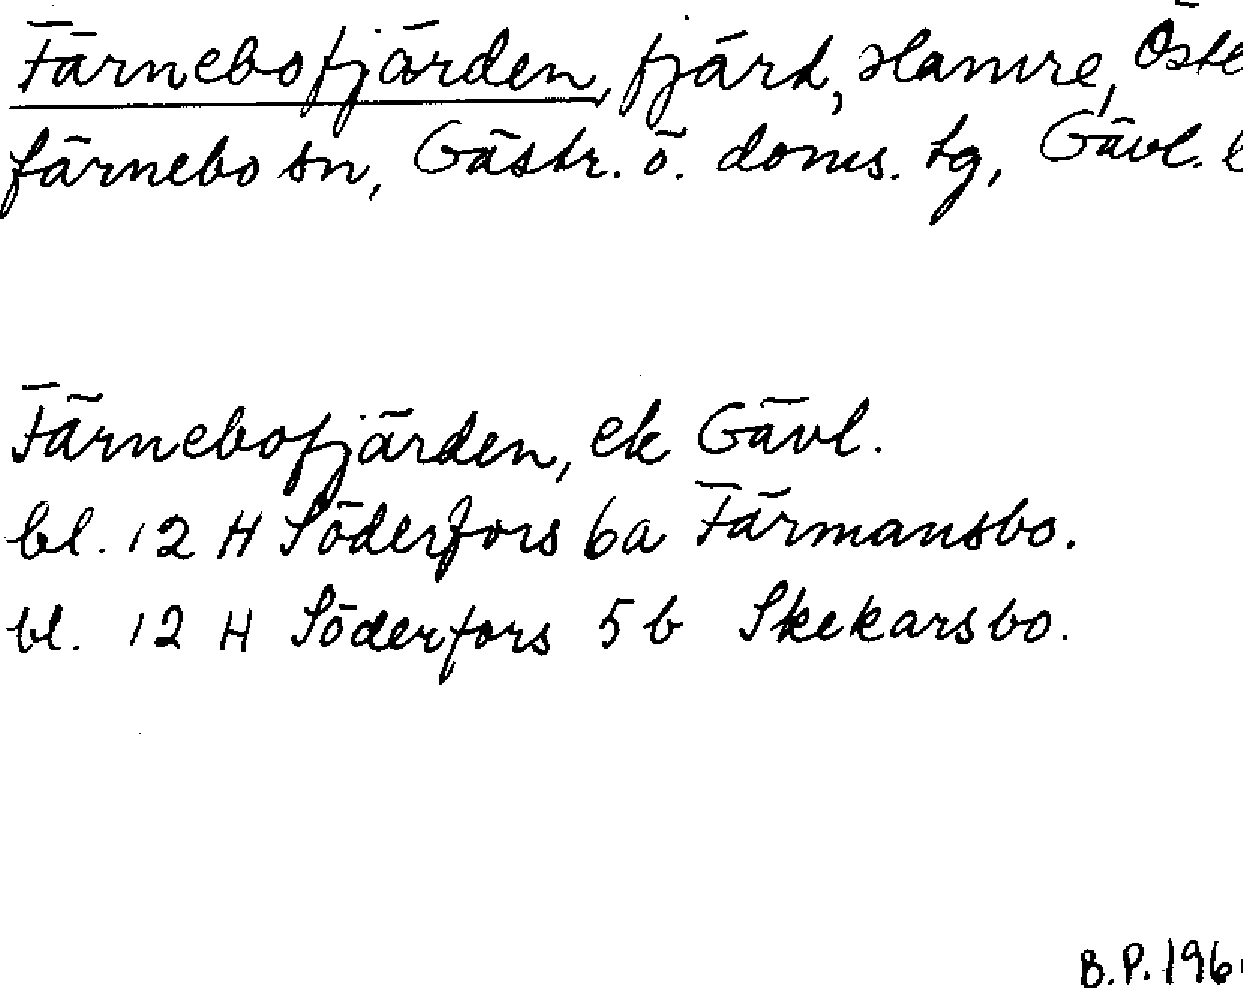 Färnebofjärden, fjärd, Hamre, Öste
färnebo sn, Gästr. ö. doms. tg, Gävl. l
Färnebofjärden, ek Gävl.
bl. 12 H Söderfors 6a Färmansbo.
bl. 12 H Söderfors 5 b Skekarsbo.
B.P. 196